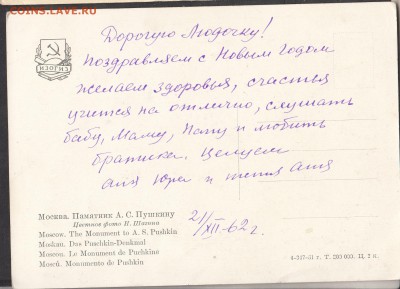 COINS.LAVE.RU
Дорогую Людочку!
Поздравляем с Новым Годом
желаем здоровья, счастья
учится на отлично, слушать
бабу, Маму, Папу и любить
братика. Целуем
дядя Юра и тетя Аля
21/XII-62 г.
ИЗОГИЗ
Москва. Памятник А. С. Пушкину
Цветное фото Н. Шагина
Moscow. The Monument to A. S. Pushkin
Moskau. Das Puschkin-Denkmal
Moscou. Le Monument de Pouchkine
Moscú. Monumento de Pushkin